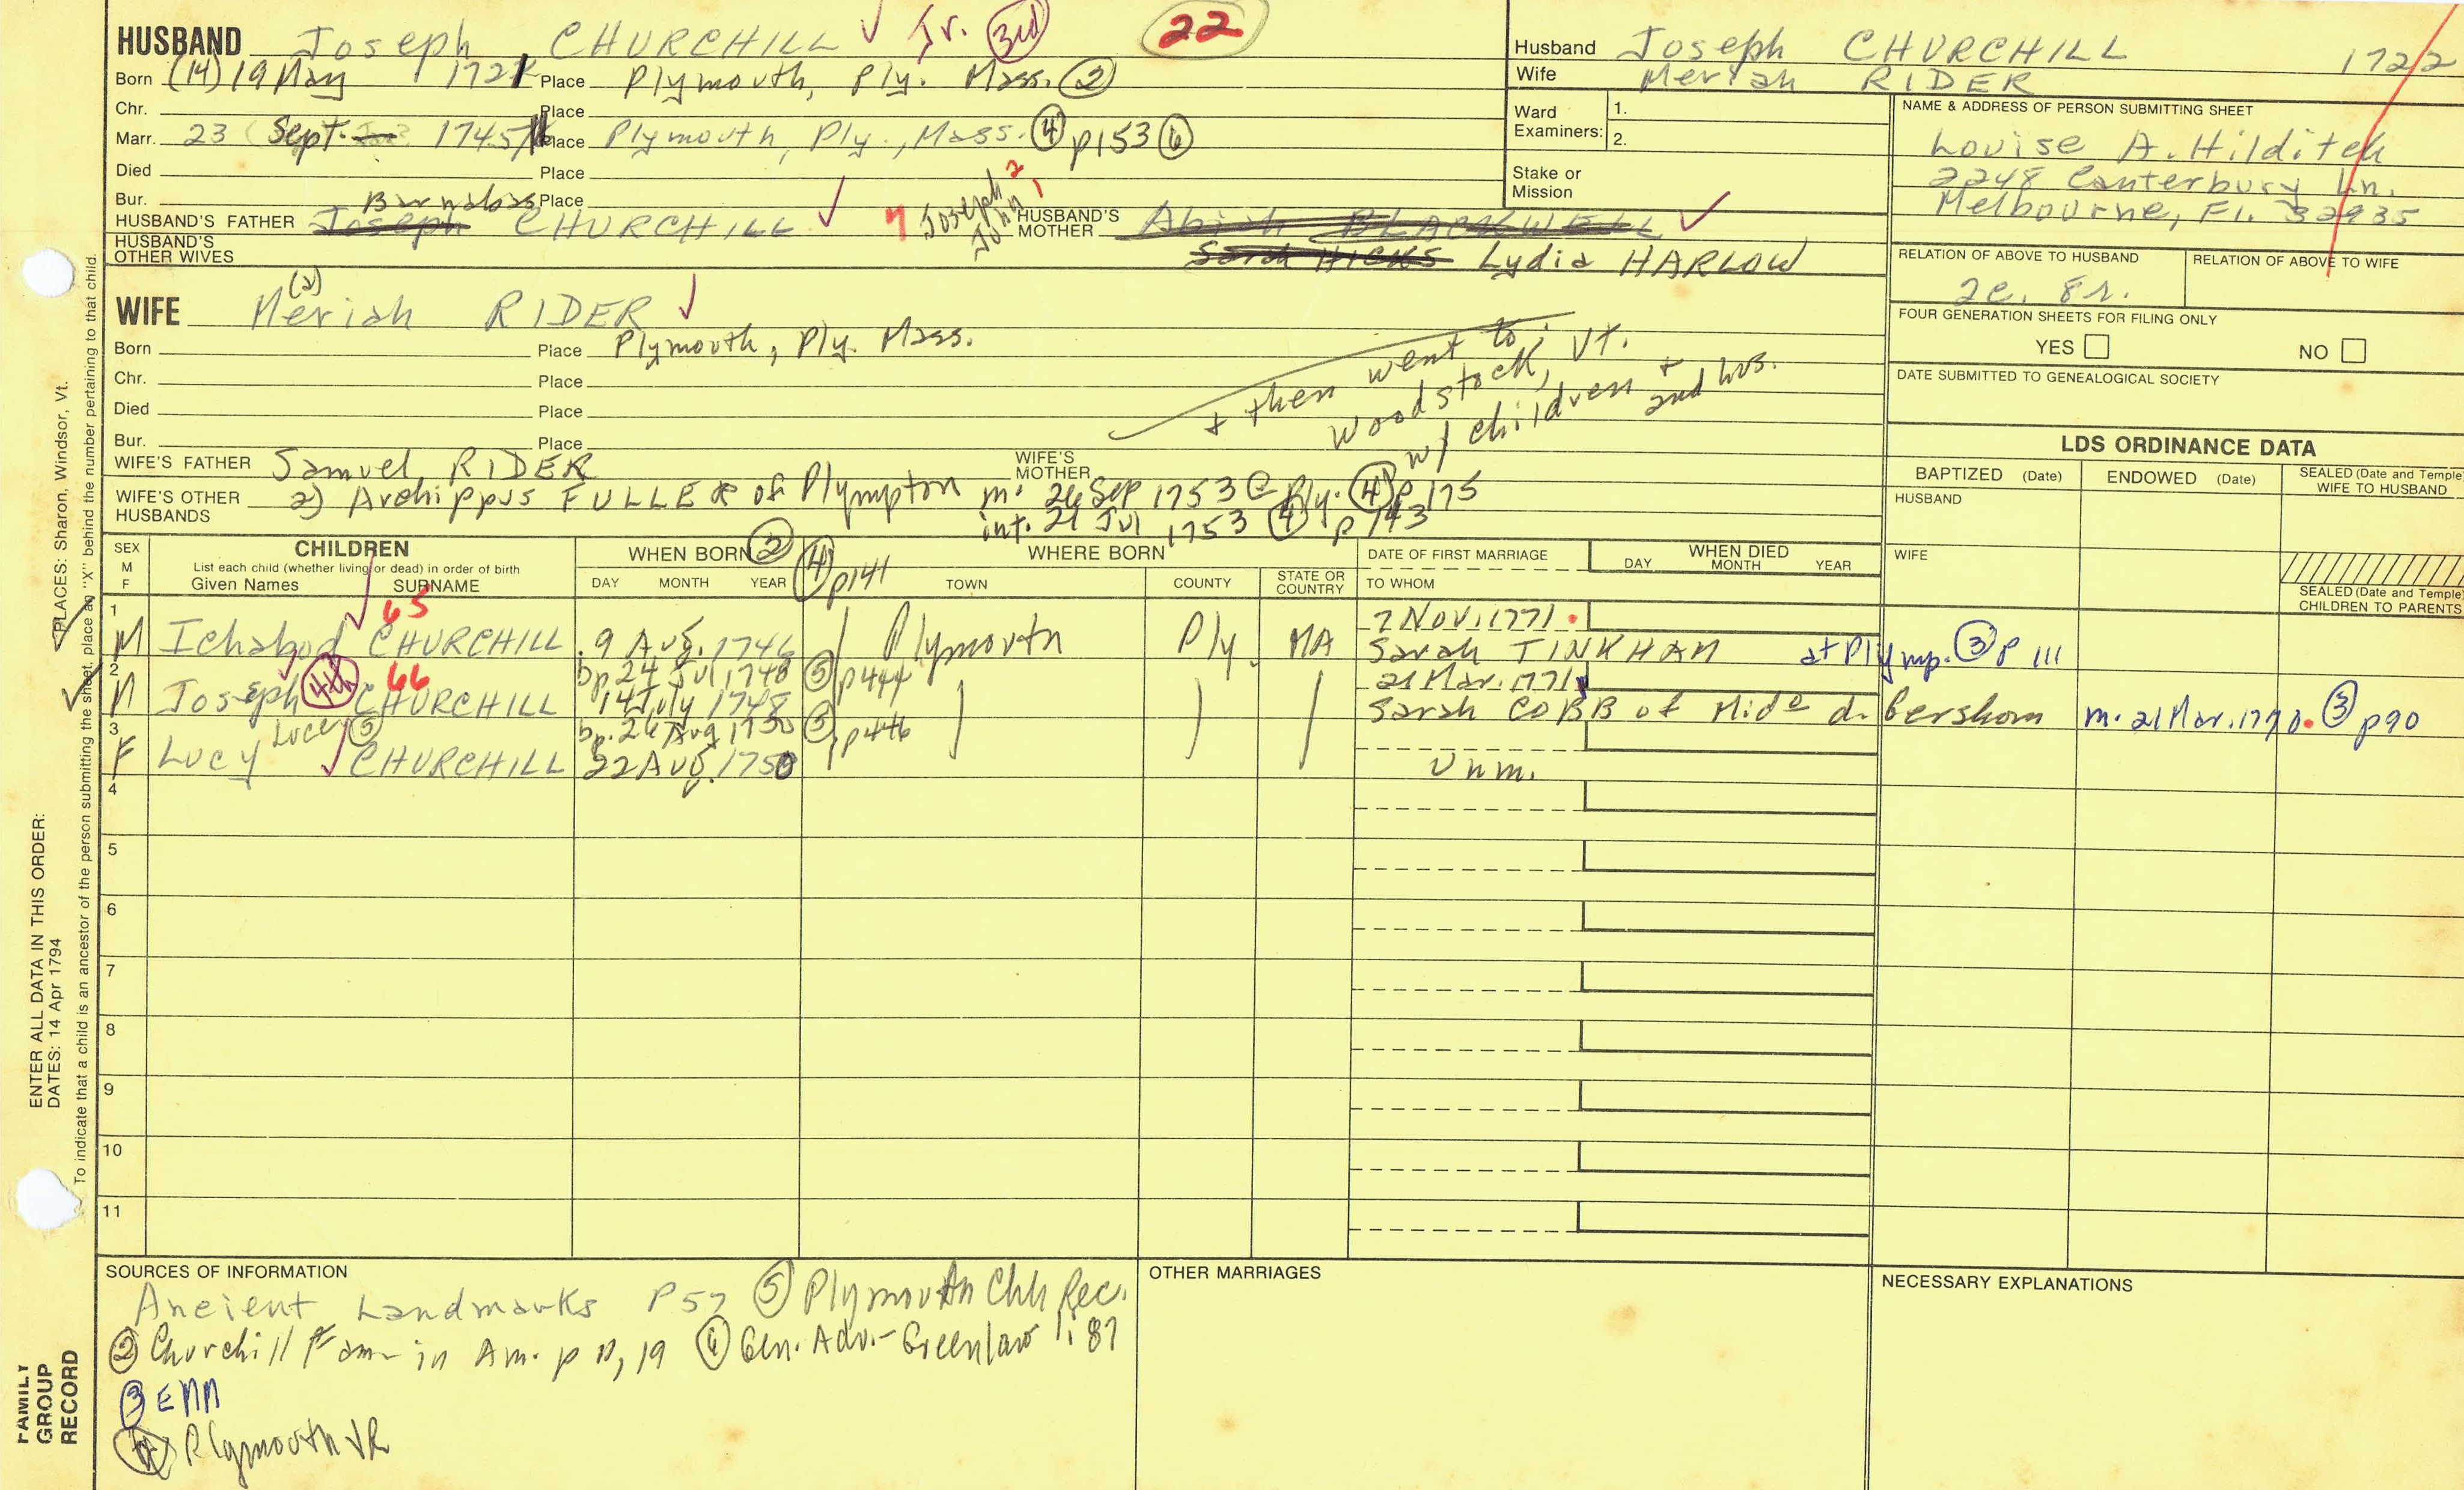 HUSBAND Joseph CHURCHILL Jr. 3rd 22
Born (14) 19 May 1721 Place Plymouth, Ply. Mass. 2
Chr. Place
Marr. 23 Sept. 1745/ Place Plymouth, Ply., Mass. 4 p153 6
Died Place
Bur. Place
Barnabas
HUSBAND'S FATHER Joseph CHURCHILL 7 Joseph 2 John 1 HUSBAND'S MOTHER Abiah BLACKWELL
HUSBAND'S OTHER WIVES Sarah HICKS Lydia HARLOW
Husband Joseph CHURCHILL 1722
Wife Meriah RIDER
Ward Examiners: 1.
2.
Stake or Mission
NAME & ADDRESS OF PERSON SUBMITTING SHEET
Louise A. Hilditch
2248 Canterbury Ln.
Melbourne, Fl. 32935
RELATION OF ABOVE TO HUSBAND RELATION OF ABOVE TO WIFE
2c. 8r.
FOUR GENERATION SHEETS FOR FILING ONLY
YES NO
DATE SUBMITTED TO GENEALOGICAL SOCIETY
(2)
WIFE Meriah RIDER
Born Place Plymouth, Ply. Mass.
Chr. Place
Died Place
Bur. Place
+ then went to
Woodstock, Vt.
w/ children +
2nd hus.
WIFE'S FATHER Samuel RIDER WIFE'S MOTHER
WIFE'S OTHER HUSBANDS 2) Archippus FULLER of Plympton m. 26 Sep 1753 @ Ply. 4 p175
int. 21 Jul 1753 4 p143
LDS ORDINANCE DATA
BAPTIZED (Date) ENDOWED (Date) SEALED (Date and Temple) WIFE TO HUSBAND
HUSBAND
WIFE
SEALED (Date and Temple) CHILDREN TO PARENTS
SEX M F CHILDREN WHEN BORN 2 4 p141 WHERE BORN DATE OF FIRST MARRIAGE WHEN DIED
List each child (whether living or dead) in order of birth
Given Names SURNAME DAY MONTH YEAR TOWN COUNTY STATE OR COUNTRY TO WHOM DAY MONTH YEAR
1 65 7 Nov. 1771
M Ichabod CHURCHILL 9 Aug. 1746 Plymouth Ply. MA Sarah TINKHAM at Plymp. 3 p 111
2 4th 66 bp. 24 Jul 1748 5 p444 21 Mar. 1771
M Joseph CHURCHILL 14 July 1748 Sarah COBB of Mid d. Gershom m. 21 Mar. 1770. 3 p90
3 Lucey 5 bp. 26 Aug 1750 5 p446
F Lucy CHURCHILL 22 Aug. 1750 Unm.
4
5
6
7
8
9
10
11
SOURCES OF INFORMATION
Ancient Landmarks P57 5 Plymouth Chh Rec.
2 Churchill Fam in Am. p 11, 19 6 Gen. Adv.-Greenlaw 1:87
3 EMM
4 Plymouth VR
OTHER MARRIAGES
NECESSARY EXPLANATIONS
ENTER ALL DATA IN THIS ORDER:
DATES: 14 Apr 1794
PLACES: Sharon, Windsor, Vt.
To indicate that a child is an ancestor of the person submitting the sheet, place an "X" behind the number pertaining to that child.
FAMILY
GROUP
RECORD